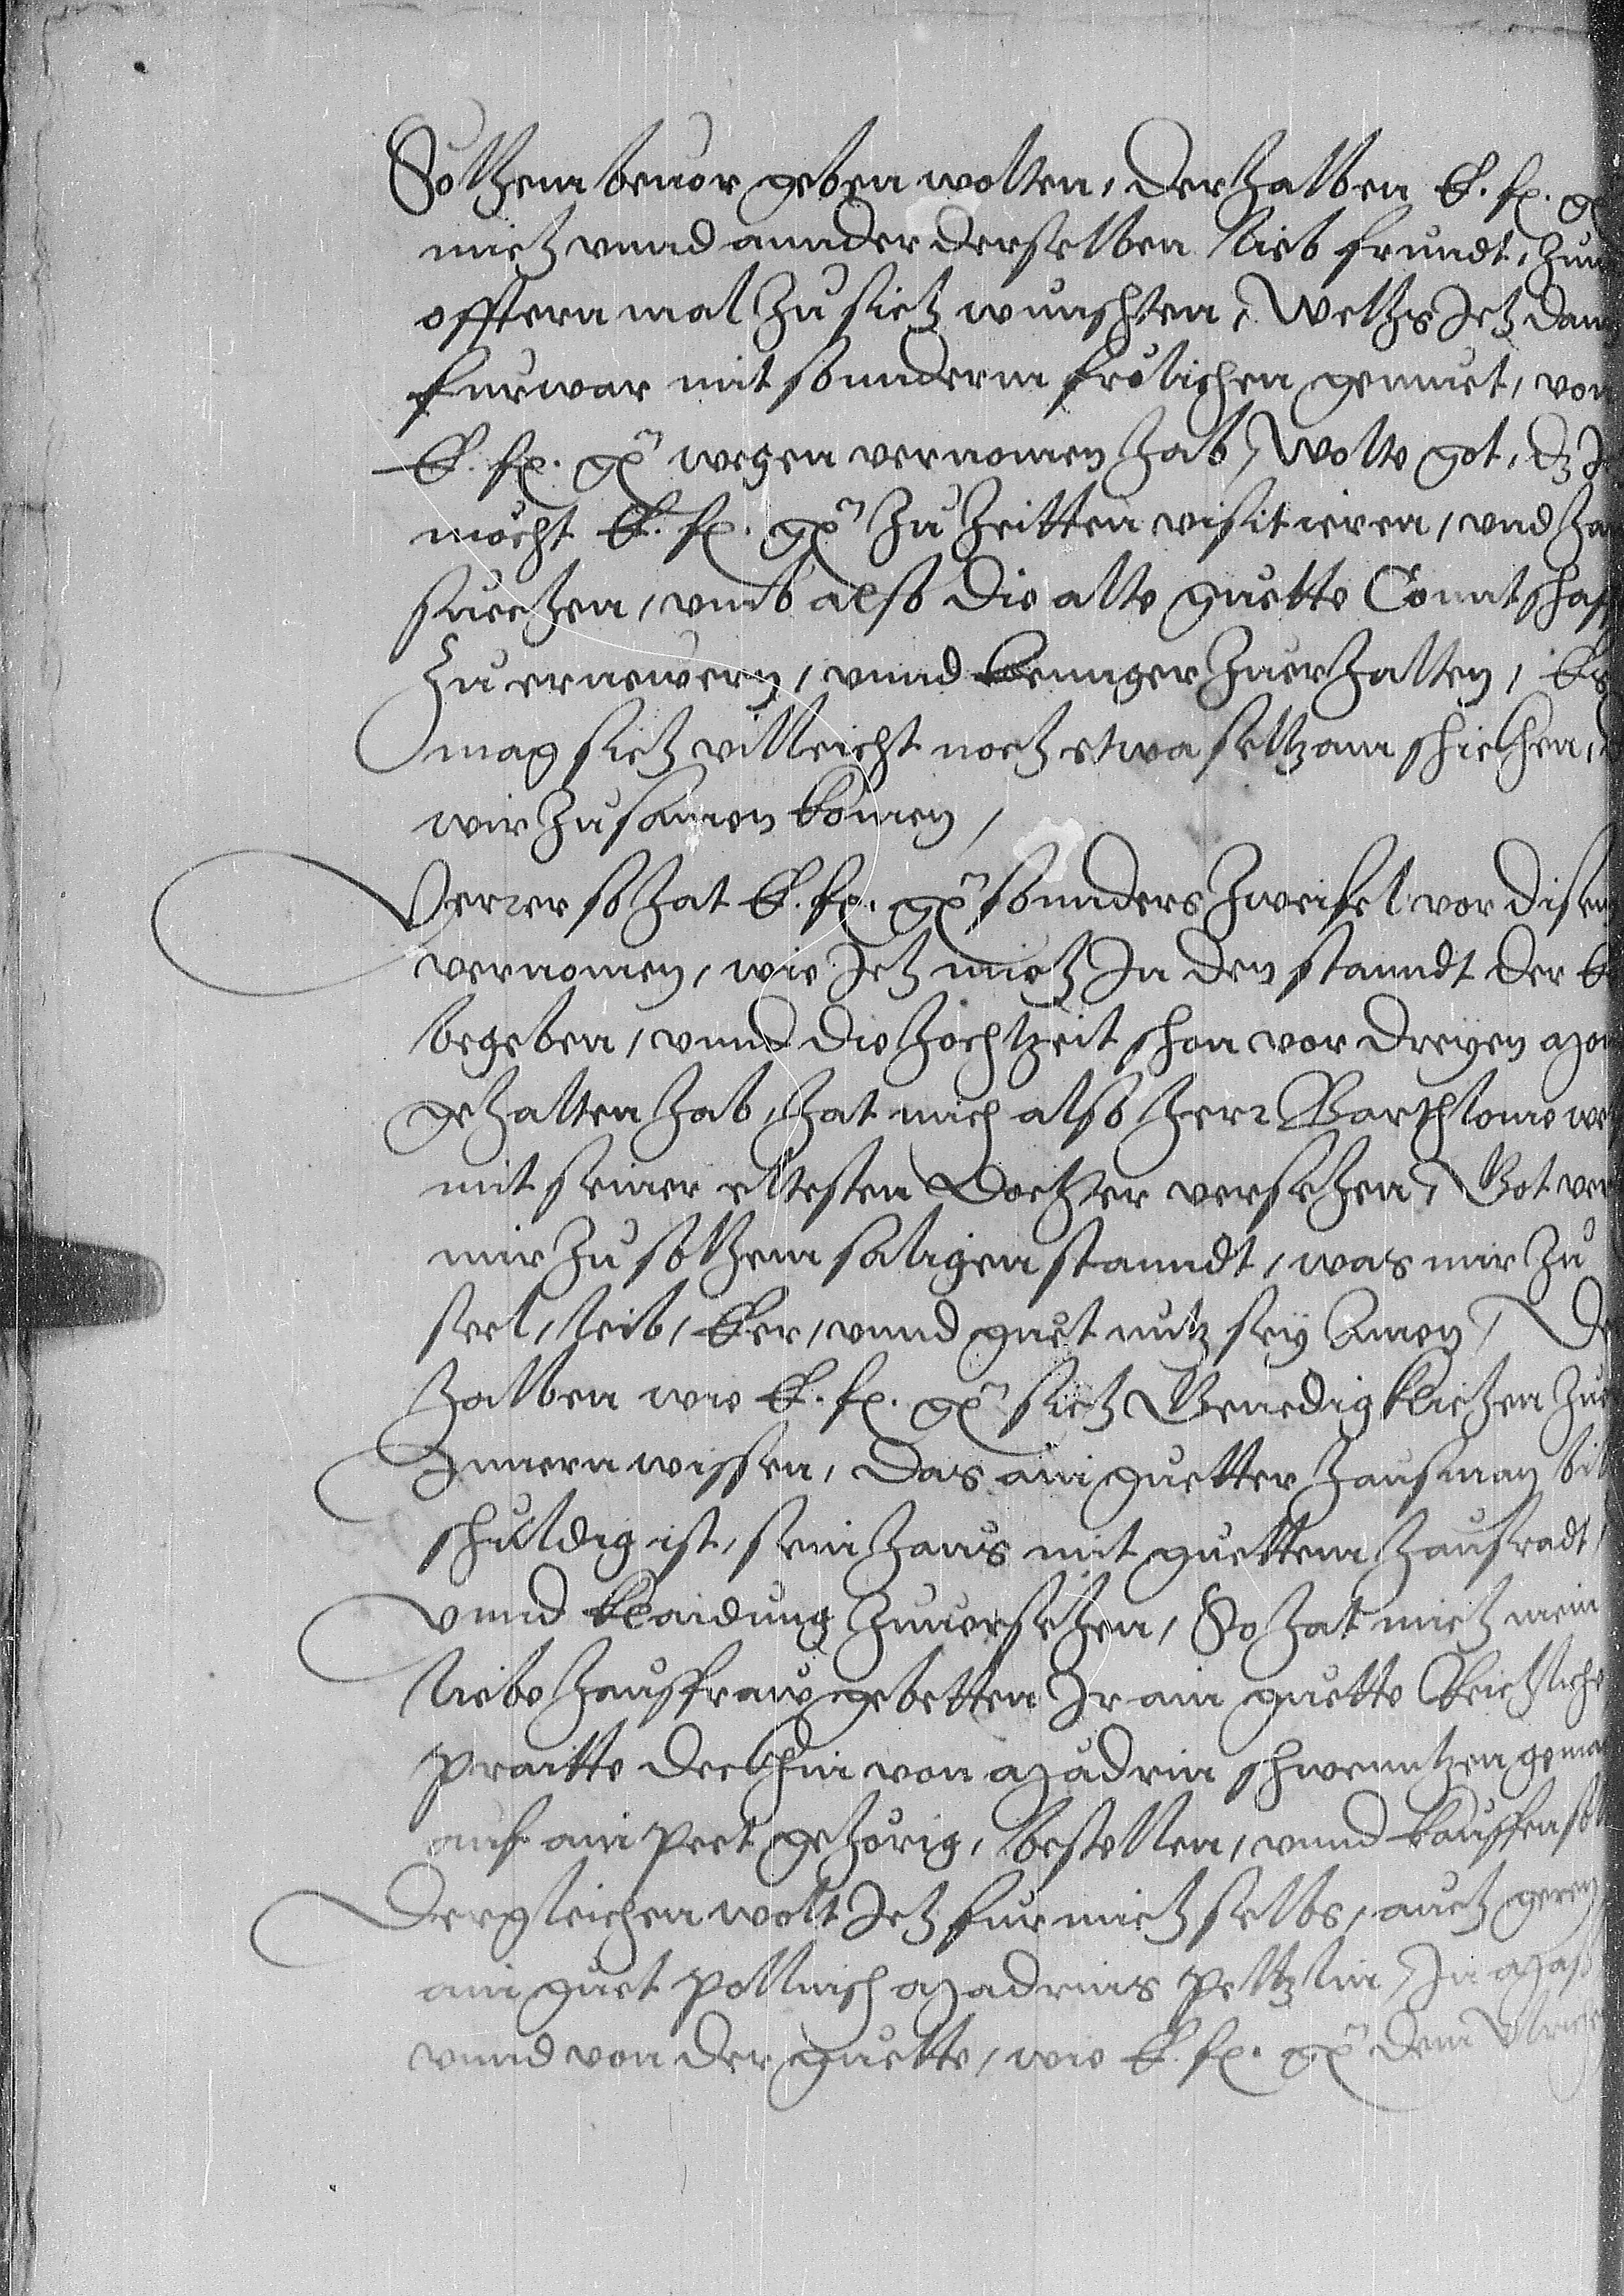 Solhem beuor geben wolten, Derhalben E. f. g
mich vnnd annder derselben lieb freundt, Zum
offtern mal Zu sich wunschten, Welchs Ich dann
furwar mit sunnderm frölichen gemuet, von
E. f. g. wegen vernomen hab, Wolte got, dz Ich
möcht E. f. g. Zu Zeitten visitieren, vnd ha
suechen, vmb also die alte guette Conntschafft
Zuernewern, vnnd lennger Zuerhalten, Es
mag sich villeicht noch etwa seltzam schickhen, d
wir Zusamen komen,
Verrer so hat E. f. g. sonnders Zweifel vor disem
vernomen, wie Ich mich In den stanndt der E
begeben, vnnd die hochtzeit schon vor dreyen mon
gehalten hab, hat mich also herr Barthlome we
mit seiner eltesten Dochter versehen, Got ver
mir Zu solhem saligen stanndt, was mir Zu
seel, leib, Eer, vnnd guet nutz sey Amen, De
halben wie E. f. g. sich Genedigklichen Zue
Innern wissen, das ain guetter hausman bil
schuldig ist, sein haus mit guettem hausradt,
vnnd klaidung Zuuersehen, So hat mich mein
liebe hausfraw gebetten Ir ain guette leichtliche
praitte deckhin von madrin schwenntzen gema
auf ain pret gehörig, bestellen, vnnd kauffen sol
Dergleichen wolt Ich fur mich selbs, auch geren
ain guet pollnisch madreins peltzlin, In mass
vnnd von der guette, wie E. f. g. dem Ulrich